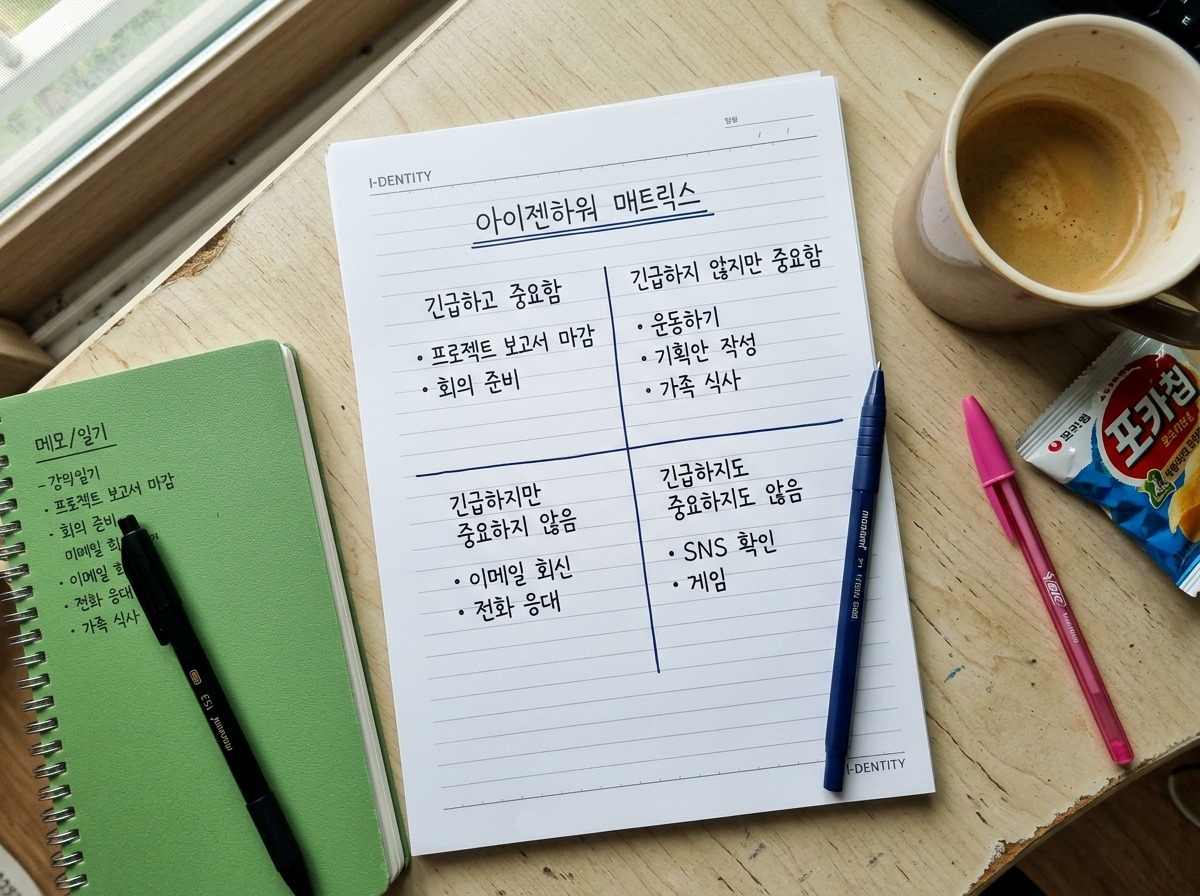 I-DENTITY
/ /
아이젠하워 매트릭스
긴급하고 중요함
• 프로젝트 보고서 마감
• 회의 준비
긴급하지 않지만 중요함
• 운동하기
• 기획안 작성
• 가족 식사
긴급하지만
중요하지 않음
• 이메일 회신
• 전화 응대
긴급하지도
중요하지도 않음
• SNS 확인
• 게임
I-DENTITY
메모/일기
- 강의일기
• 프로젝트 보고서 마감
• 회의 준비
미메일 회
• 이메일 회
• 전화 응대
• 가족 식사
153
포카칩
BIC